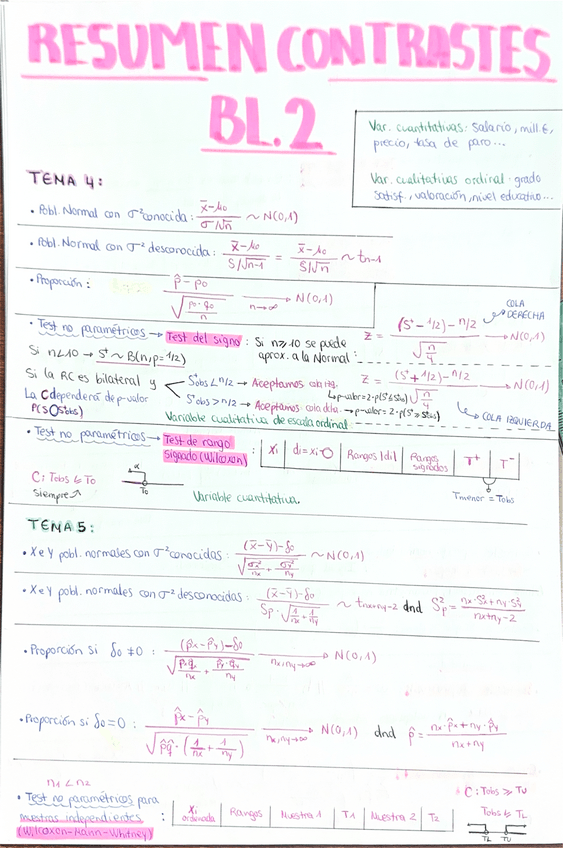 RESUMEN CONTRASTES
BL.2
Var. cuantitativas: salario, mill.€,
precio, tasa de paro...
Var. cualitativas ordinal: grado
satisf., valoración, nivel educativo...
TEMA 4:
• Pobl. Normal con σ² conocida: (x̄-μ₀)/(σ/√n) ~ N(0,1)
• Pobl. Normal con σ² desconocida: (x̄-μ₀)/(S/√n-1) = (x̄-μ₀)/(S/√n) ~ tn-1
• Proporción: (p̂ - p₀)/√(p₀·q₀/n) → n→∞ N(0,1)
COLA DERECHA
• Test no paramétricos → Test del signo: Si n≥10 se puede
aprox. a la Normal:
Z = ((S⁺-1/2)-n/2)/√(n/4) → N(0,1)
Si n<10 → S⁺ ~ B(n, p=1/2)
Si la RC es bilateral y
S⁺obs < n/2 → Aceptamos cola izq.
↳ p-valor = 2·p(S⁺≤S⁺obs)
Z = ((S⁺+1/2)-n/2)/√(n/4) → N(0,1)
La C dependerá de p-valor
P(S⁺ S⁺obs)
S⁺obs > n/2 → Aceptamos cola dcha. → p-valor = 2·p(S⁺≥S⁺obs)
COLA IZQUIERDA
Variable cualitativa de escala ordinal
• Test no paramétricos → Test de rango
signado (Wilcoxon):
Xi | di=xi-0 | Rangos |di| | Rangos signados | T⁺ | T⁻
C: Tobs ≤ To
siempre
α
To
Variable cuantitativa.
Tmenor = Tobs
TEMA 5:
• X e Y pobl. normales con σ² conocidas: ((x̄-ȳ)-δ₀)/√(σx²/nx + σy²/ny) ~ N(0,1)
• X e Y pobl. normales con σ² desconocidas: ((x̄-ȳ)-δ₀)/(Sp·√(1/nx + 1/ny)) ~ tnx+ny-2 dnd S²p = (nx·S²x+ny·S²y)/(nx+ny-2)
• Proporción si δ₀ ≠ 0: ((p̂x-p̂y)-δ₀)/√(p̂x·q̂x/nx + p̂y·q̂y/ny) → nx,ny→∞ N(0,1)
• Proporción si δ₀=0: (p̂x-p̂y)/√(p̂q̂·(1/nx + 1/ny)) → nx,ny→∞ N(0,1) dnd p̂ = (nx·p̂x+ny·p̂y)/(nx+ny)
n1 < n2
C: Tobs ≥ Tu
• Test no paramétricos para
muestras independientes
(Wilcoxon-Mann-Whitney)
Xi ordenada | Rangos | Muestra 1 | T1 | Muestra 2 | T2
Tobs ≤ TL
TL Tu